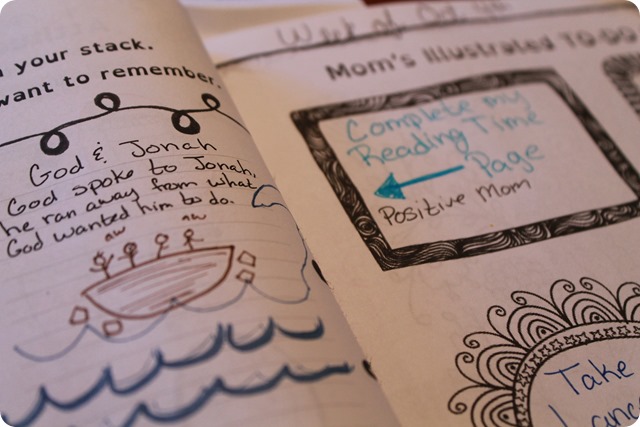 your stack.
want to remember.
God & Jonah
God spoke to Jonah,
he ran away from what
God wanted him to do.
Week of Oct.
Mom's Illustrated TO-DO
Complete my
Reading Time
Page
Positive Mom
Take